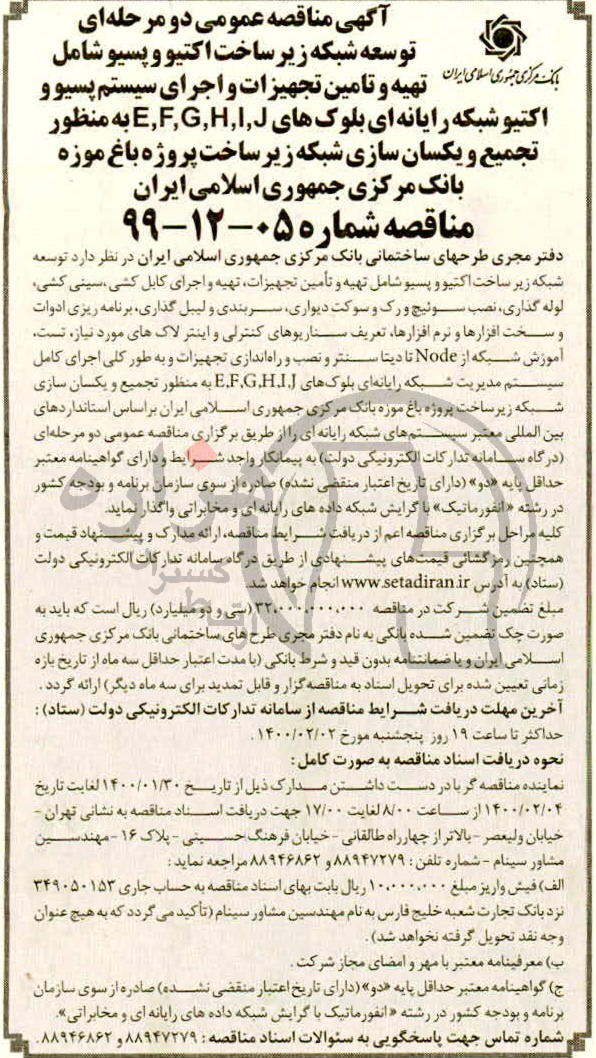 آگهی مناقصه عمومی دو مرحله‌ای
توسعه شبکه زیرساخت اکتیو و پسیو شامل
بانک مرکزی جمهوری اسلامی ایران
تهیه و تامین تجهیزات و اجرای سیستم پسیو و
اکتیو شبکه رایانه‌ای بلوک‌های E,F,G,H,I,J به منظور
تجمیع و یکسان سازی شبکه زیرساخت پروژه باغ موزه
بانک مرکزی جمهوری اسلامی ایران
مناقصه شماره ۰۵-۱۲-۹۹
دفتر مجری طرحهای ساختمانی بانک مرکزی جمهوری اسلامی ایران در نظر دارد توسعه
شبکه زیر ساخت اکتیو و پسیو شامل تهیه و تأمین تجهیزات، تهیه و اجرای کابل کشی، سینی کشی،
لوله گذاری، نصب سوئیچ و رک و سوکت دیواری، سربندی و لیبل گذاری، برنامه ریزی ادوات
و سخت افزارها و نرم افزارها، تعریف سناریوهای کنترلی و اینتر لاک های مورد نیاز، تست،
آموزش شبکه از Node تا دیتا سنتر و نصب و راه‌اندازی تجهیزات و به طور کلی اجرای کامل
سیستم مدیریت شبکه رایانه‌ای بلوک‌های E,F,G,H,I,J به منظور تجمیع و یکسان سازی
شبکه زیرساخت پروژه باغ موزه بانک مرکزی جمهوری اسلامی ایران براساس استانداردهای
بین المللی معتبر سیستم‌های شبکه رایانه ای را از طریق برگزاری مناقصه عمومی دو مرحله‌ای
(درگاه سامانه تدارکات الکترونیکی دولت) به پیمانکار واجد شرایط و دارای گواهینامه معتبر
حداقل پایه «دو» (دارای تاریخ اعتبار منقضی نشده) صادره از سوی سازمان برنامه و بودجه کشور
در رشته «انفورماتیک» با گرایش شبکه داده های رایانه ای و مخابراتی واگذار نماید.
کلیه مراحل برگزاری مناقصه اعم از دریافت شرایط مناقصه، ارائه مدارک و پیشنهاد قیمت و
همچنین رمزگشائی قیمت‌های پیشنهادی از طریق درگاه سامانه تدارکات الکترونیکی دولت
(ستاد) به آدرس www.setadiran.ir انجام خواهد شد.
مبلغ تضمین شرکت در مناقصه ۳۲,۰۰۰,۰۰۰,۰۰۰ (سی و دو میلیارد) ریال است که باید به
صورت چک تضمین شده بانکی به نام دفتر مجری طرح های ساختمانی بانک مرکزی جمهوری
اسلامی ایران و یا ضمانتنامه بدون قید و شرط بانکی (با مدت اعتبار حداقل سه ماه از تاریخ بازه
زمانی تعیین شده برای تحویل اسناد به مناقصه‌گزار و قابل تمدید برای سه ماه دیگر) ارائه گردد .
آخرین مهلت دریافت شرایط مناقصه از سامانه تدارکات الکترونیکی دولت (ستاد) :
حداکثر تا ساعت ۱۹ روز پنجشنبه مورخ ۱۴۰۰/۰۲/۰۲ .
نحوه دریافت اسناد مناقصه به صورت کامل :
نماینده مناقصه گر با در دست داشتن مدارک ذیل از تاریخ ۱۴۰۰/۰۱/۳۰ لغایت تاریخ
۱۴۰۰/۰۲/۰۴ از ساعت ۸/۰۰ لغایت ۱۷/۰۰ جهت دریافت اسناد مناقصه به نشانی تهران -
خیابان ولیعصر - بالاتر از چهارراه طالقانی - خیابان فرهنگ حسینی - پلاک ۱۶ - مهندسین
مشاور سینام - شماره تلفن : ۸۸۹۴۷۲۷۹ و ۸۸۹۴۶۸۶۲ مراجعه نماید :
الف) فیش واریز مبلغ ۱۰,۰۰۰,۰۰۰ ریال بابت بهای اسناد مناقصه به حساب جاری ۳۴۹۰۵۰۱۵۳
نزد بانک تجارت شعبه خلیج فارس به نام مهندسین مشاور سینام (تأکید می‌گردد که به هیچ عنوان
وجه نقد تحویل گرفته نخواهد شد) .
ب) معرفینامه معتبر با مهر و امضای مجاز شرکت .
ج) گواهینامه معتبر حداقل پایه «دو» (دارای تاریخ اعتبار منقضی نشده) صادره از سوی سازمان
برنامه و بودجه کشور در رشته «انفورماتیک با گرایش شبکه داده های رایانه ای و مخابراتی».
شماره تماس جهت پاسخگویی به سئوالات اسناد مناقصه : ۸۸۹۴۷۲۷۹ و ۸۸۹۴۶۸۶۲ .
هزاره